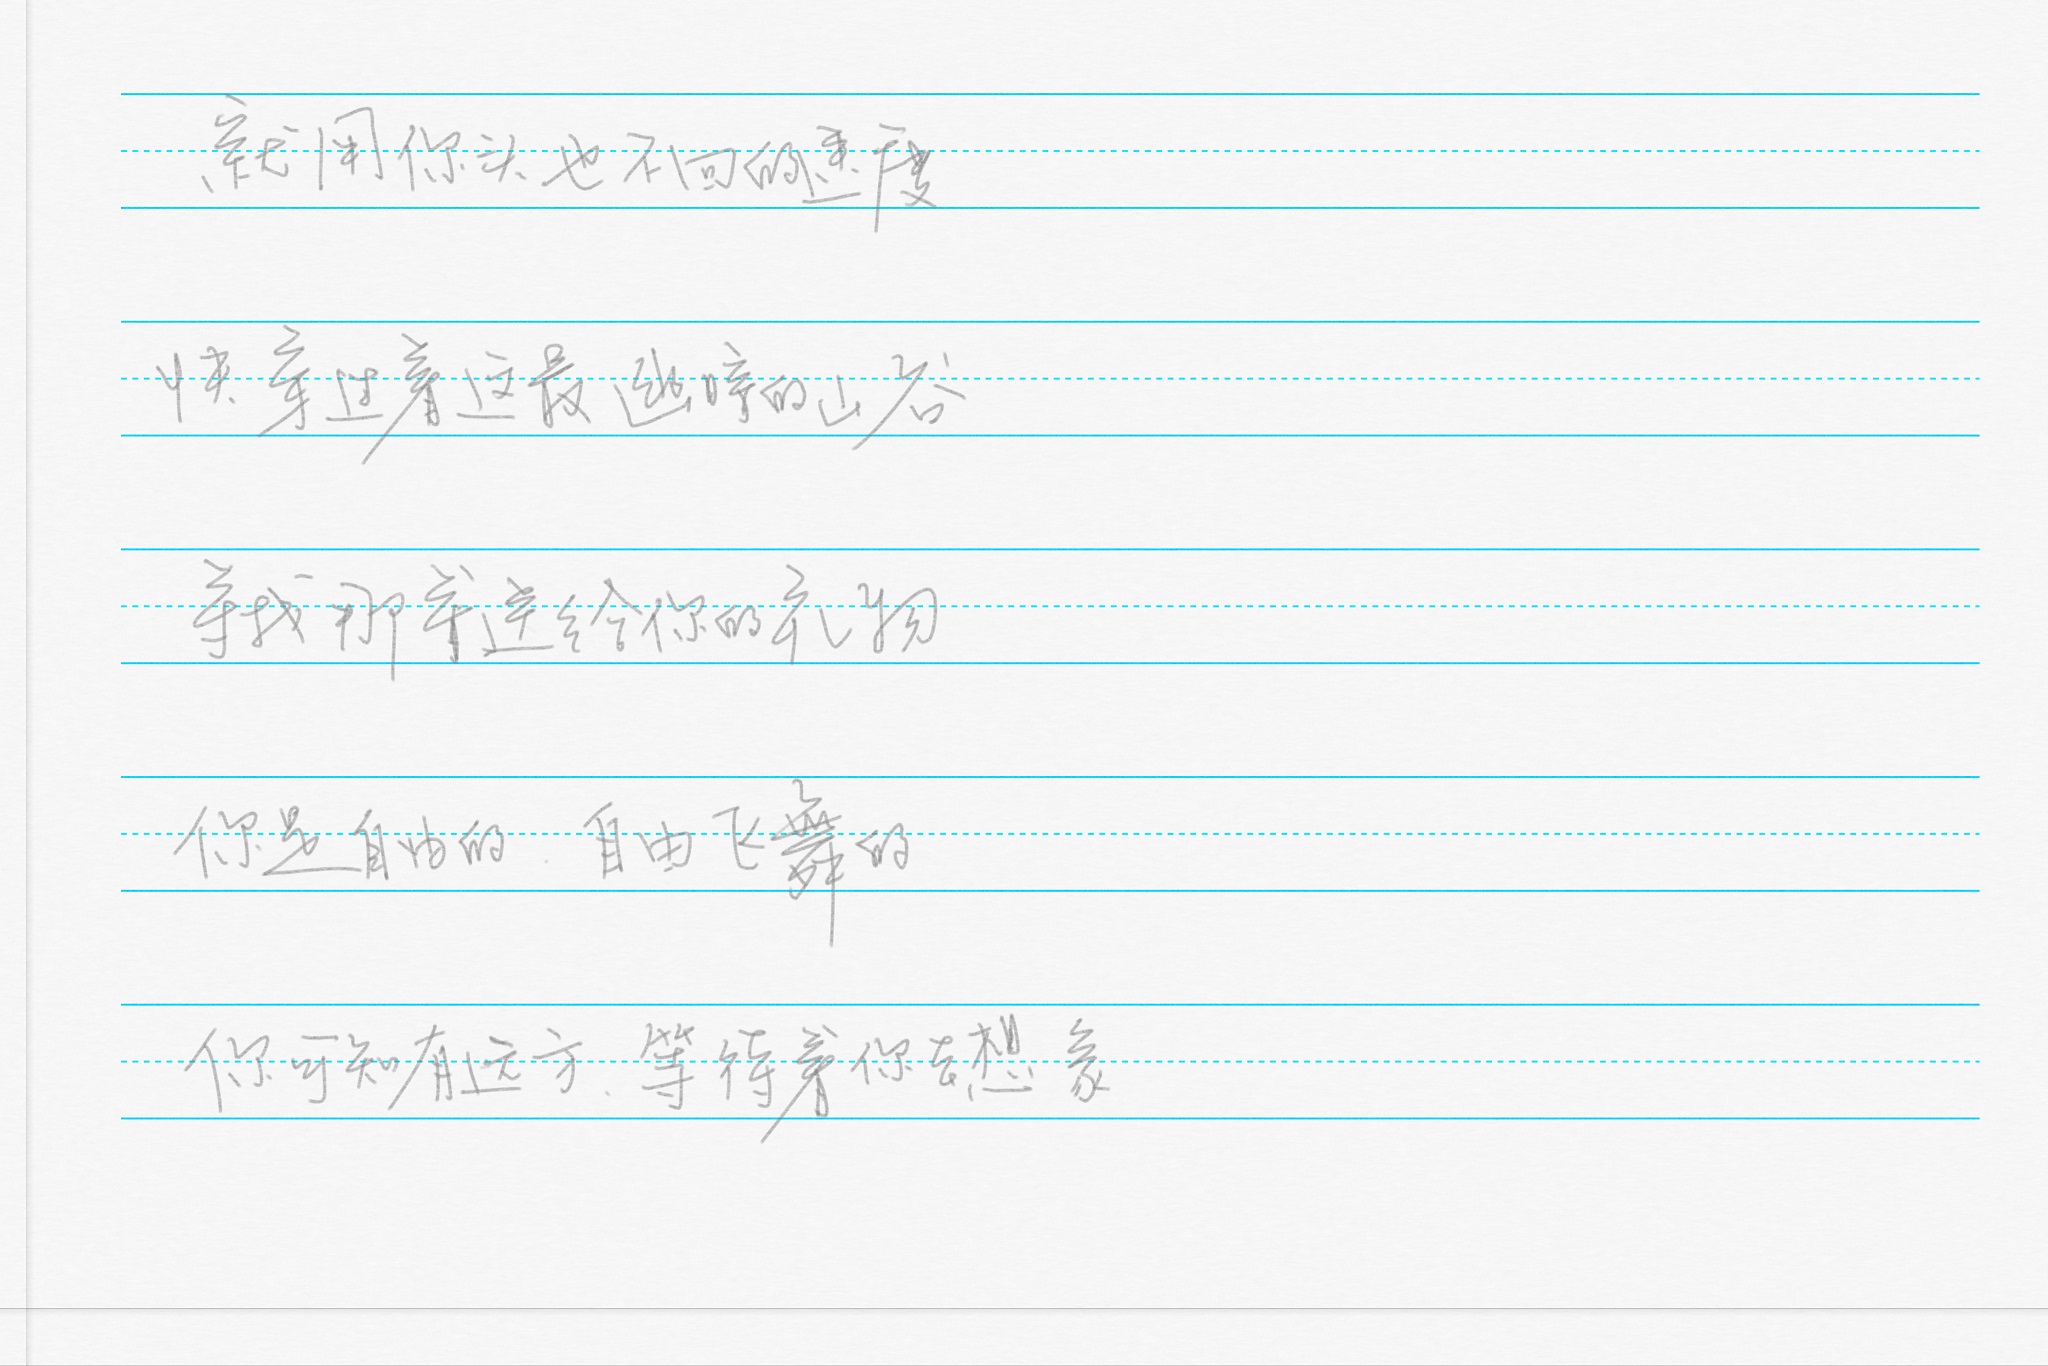 就用你头也不回的速度
快穿过着这最幽暗的山谷
寻找那幸送给你的礼物
你是自由的.自由飞舞的
你可知有远方.等待着你去想象